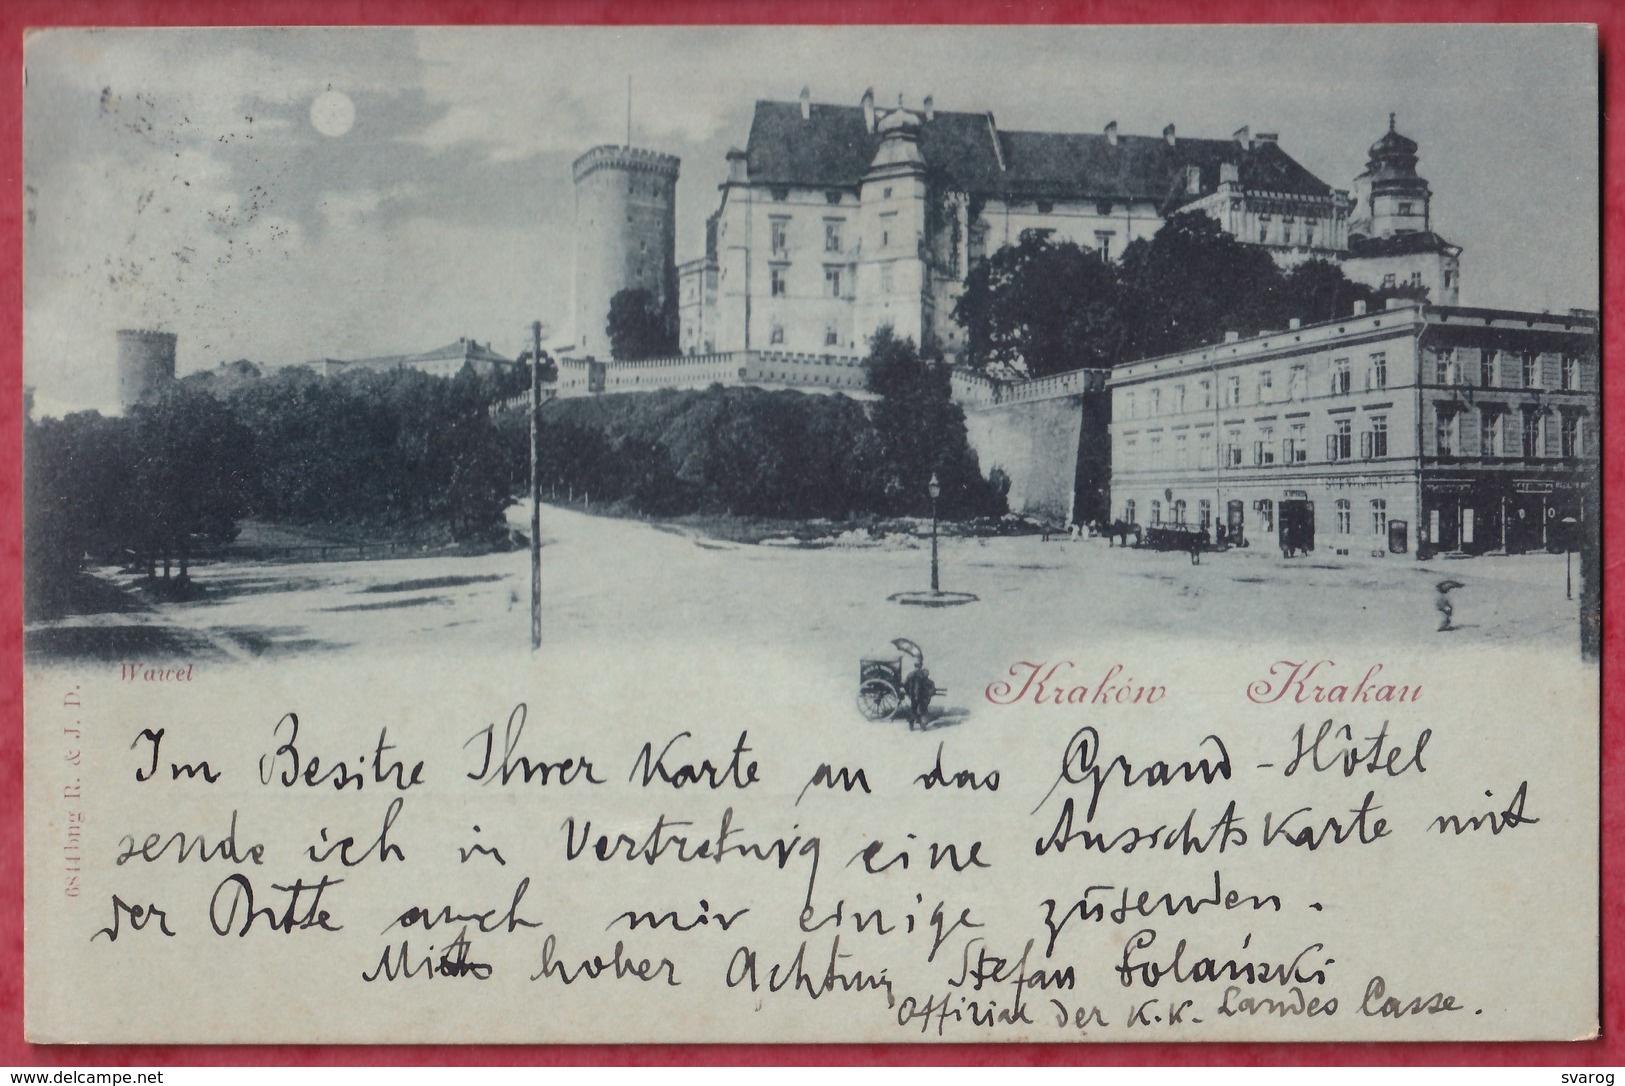 Wawel
Kraków Krakau
6844bng R. & J. D.
Im Besitze Ihrer Karte an das Grand-Hôtel
sende ich in Vertretung eine Ansichtskarte mit
der Bitte auch mir einige züsenden.
Mit hoher Achtung Stefan Polański
Offizial der K.K. Landes Casse.
www.delcampe.net
svarog